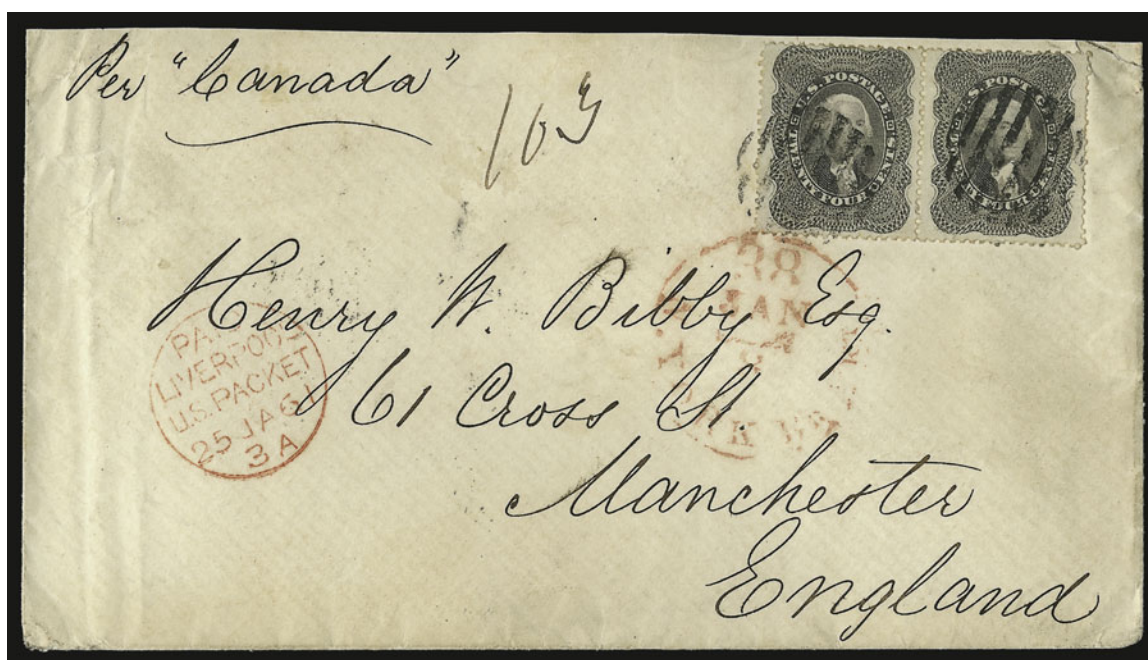 Per "Canada"
103
U.S. POSTAGE.
TWENTY FOUR CENTS
U.S. POSTAGE.
FOUR CENTS
38
JAN
Henry W. Bibby Esq.
61 Cross St.
Manchester
England
LIVERPOOL
U.S. PACKET
25 JA 61
3 A